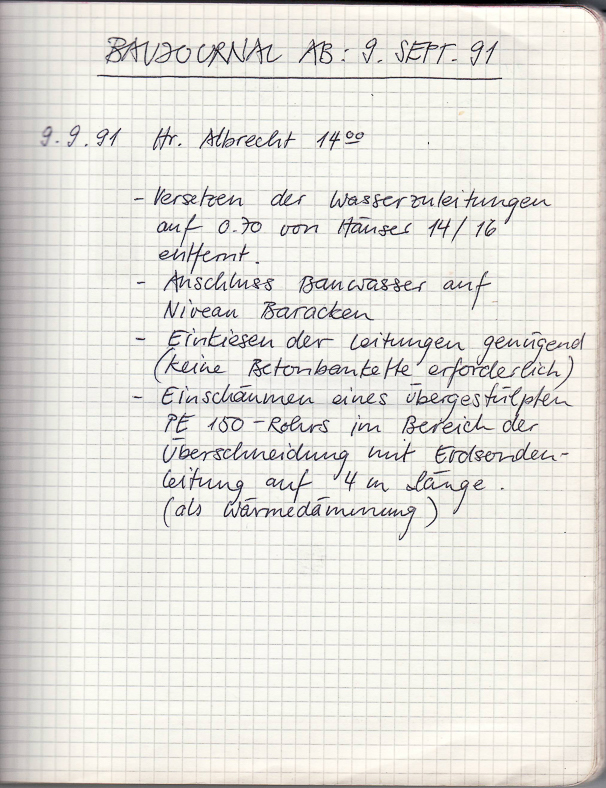 BAUJOURNAL AB: 9. SEPT. 91
9.9.91 Hr. Albrecht 14⁰⁰
- Versetzen der Wasserzuleitungen
auf 0.70 von Häuser 14/16
entfernt.
- Anschluss Bauwasser auf
Niveau Baracken
- Einkiesen der Leitungen genügend
(keine Betonbankette erforderlich)
- Einschäumen eines übergestülpten
PE 150-Rohrs im Bereich der
Überschneidung mit Erdsonden-
leitung auf 4 m Länge.
(als Wärmedämmung)